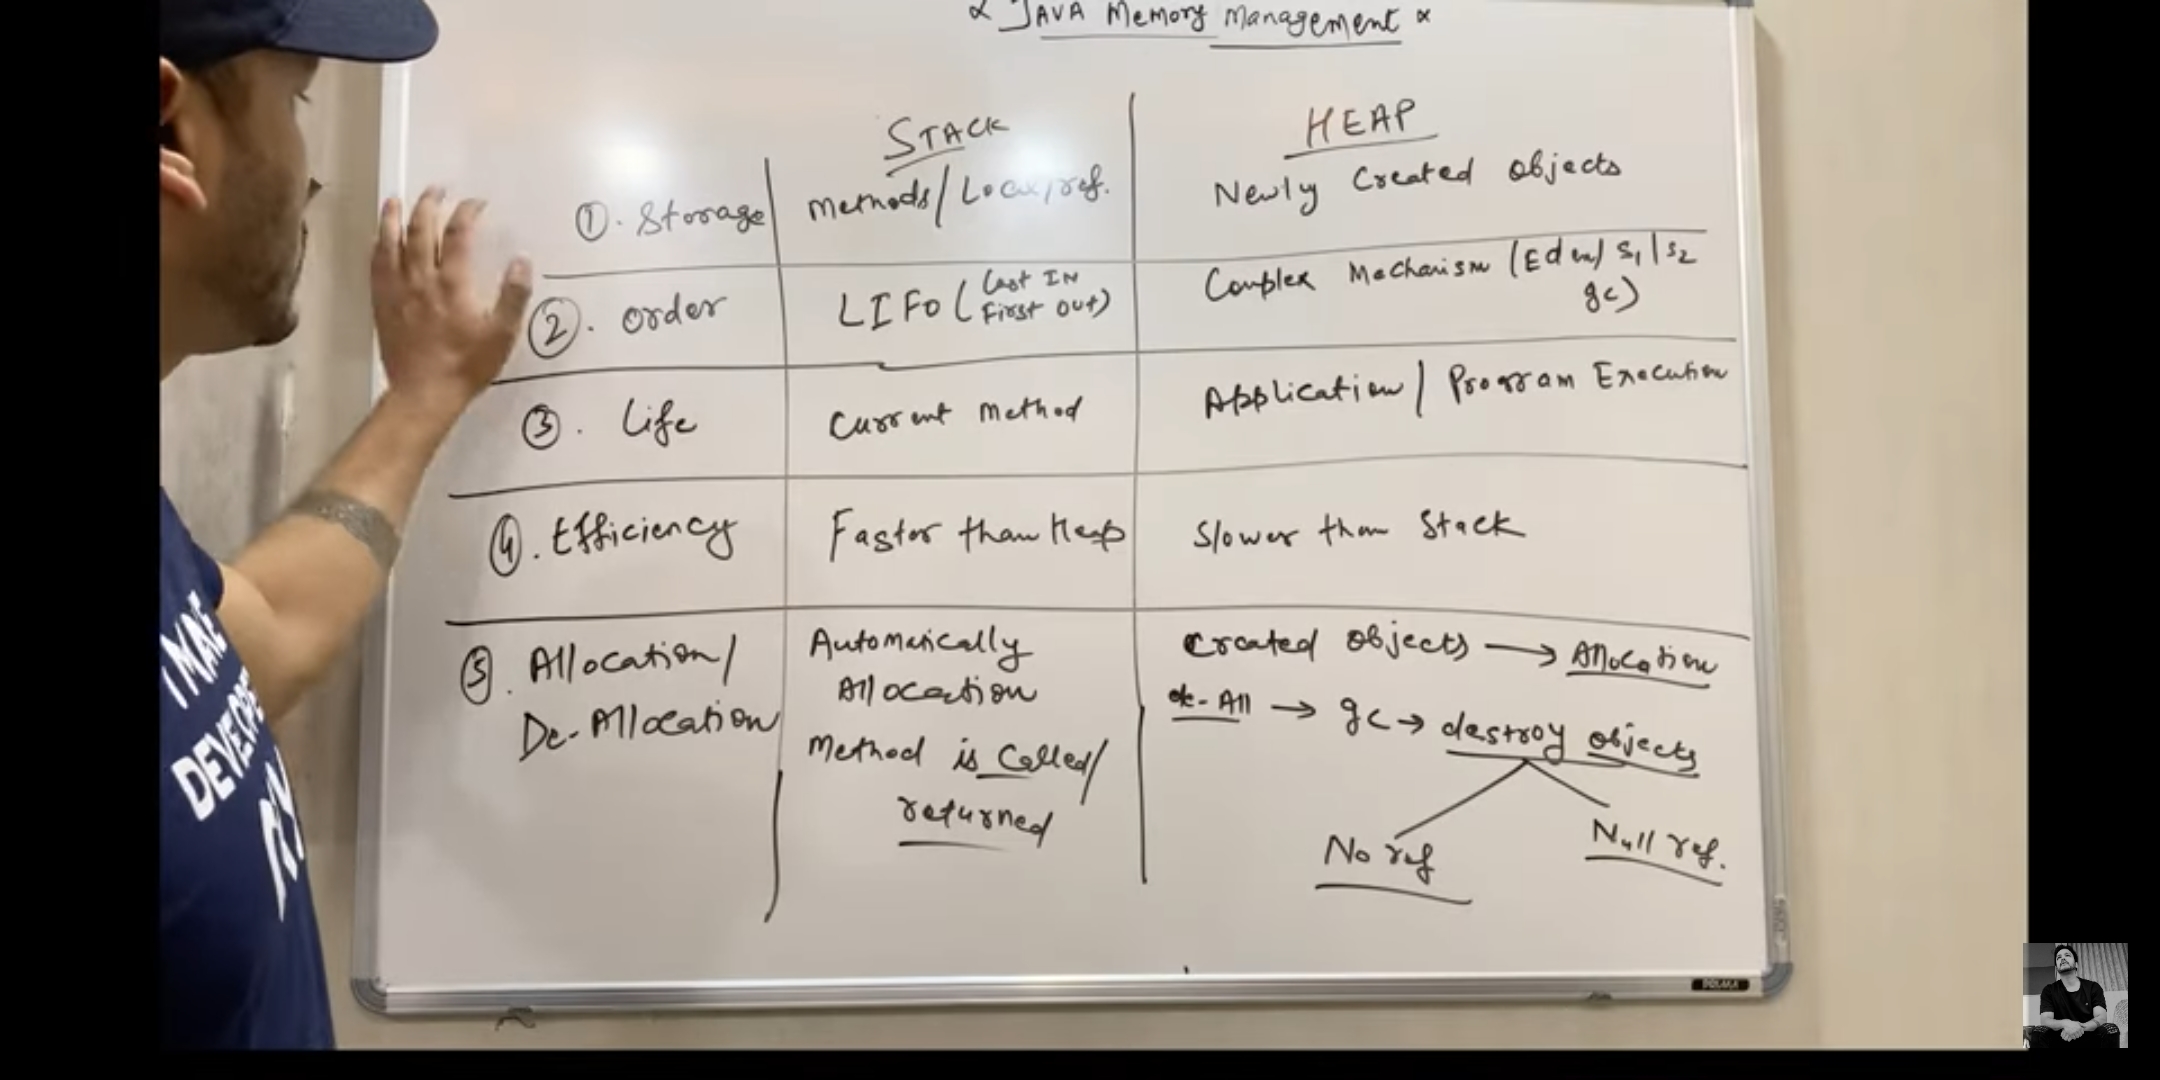 JAVA Memory Management
STACK
HEAP
①. Storage
methods/Local/ref.
Newly Created objects
②. order
LIFO (Last IN
First OUT)
Complex Mechanism (Eden/S1/S2
gc)
③. Life
Current Method
Application/Program Execution
④. Efficiency
Faster than Heap
Slower than Stack
⑤. Allocation/
De-Allocation
Automatically
Allocation
Method is Called/
returned
Created objects → Allocation
de-All → gc → destroy objects
No ref
Null ref.
I MAKE
DEVELOPE